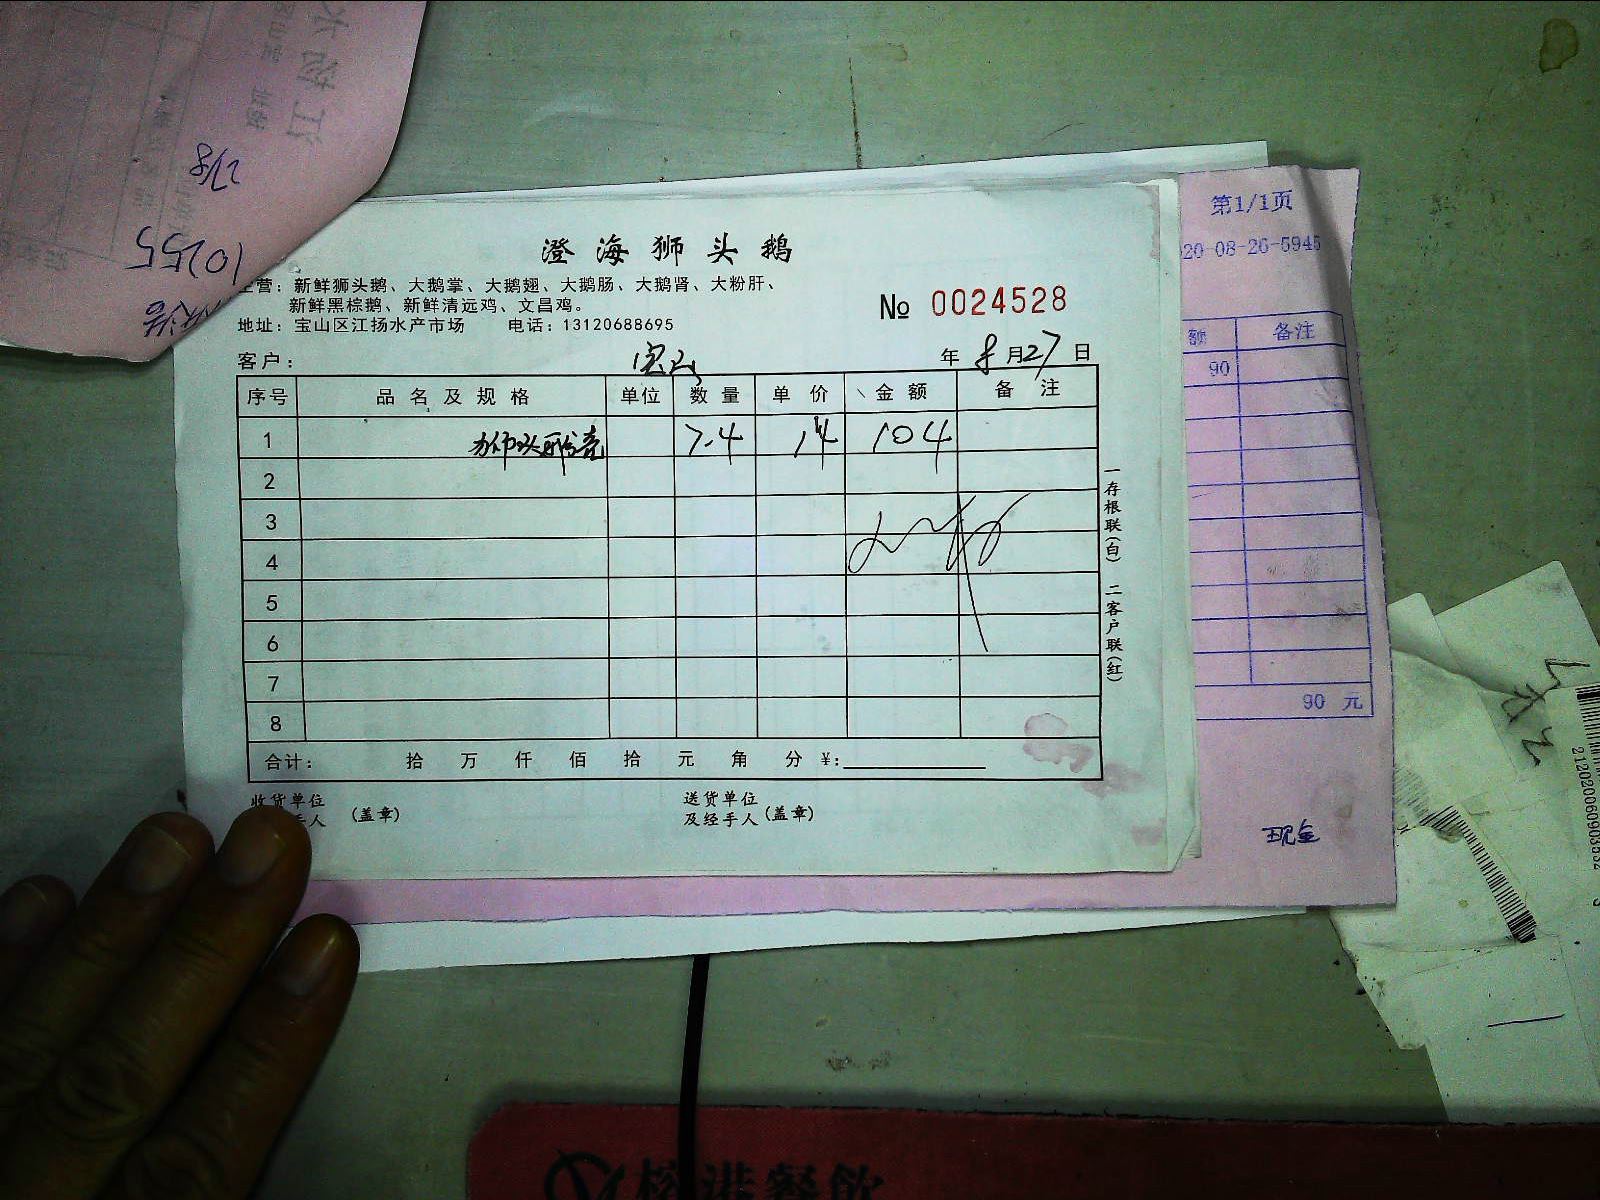 澄海狮头鹅
主营：新鲜狮头鹅、大鹅掌、大鹅翅、大鹅肠、大鹅肾、大粉肝、
新鲜黑棕鹅、新鲜清远鸡、文昌鸡。
地址：宝山区江扬水产市场 电话：13120688695
№ 0024528
客户：
年 8月27日
序号 品名及规格 单位 数量 单价 金额 备注
1 7.4 14 104
2
3
4
5
6
7
8
合计： 拾 万 仟 佰 拾 元 角 分 ¥:
收货单位
手人 (盖章)
送货单位
及经手人 (盖章)
一存根联(白) 二客户联(红)
第1/1页
20-08-26-5945
额 备注
90
90 元
现金
278
10255
榕港餐飲